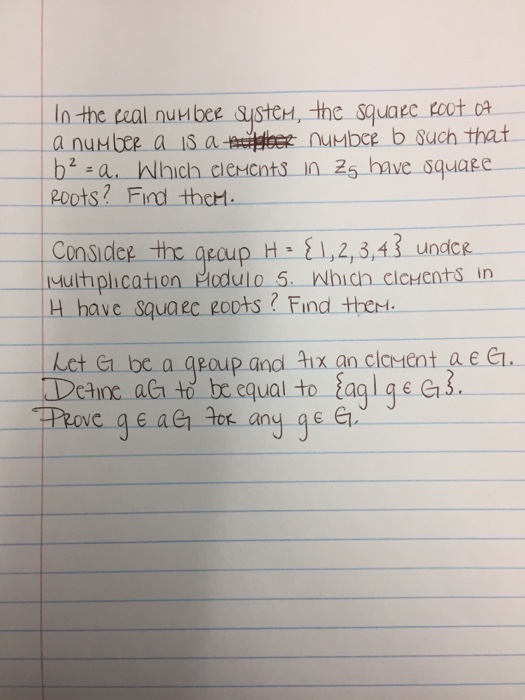 In the real number system, the square root of
a number a is a number b such that
b² = a. Which elements in Z₅ have square
roots? Find them.
Consider the group H = {1,2,3,4} under
multiplication modulo 5. Which elements in
H have square roots? Find them.
Let G be a group and fix an element a ∈ G.
Define aG to be equal to {ag | g ∈ G}.
Prove g ∈ aG for any g ∈ G.